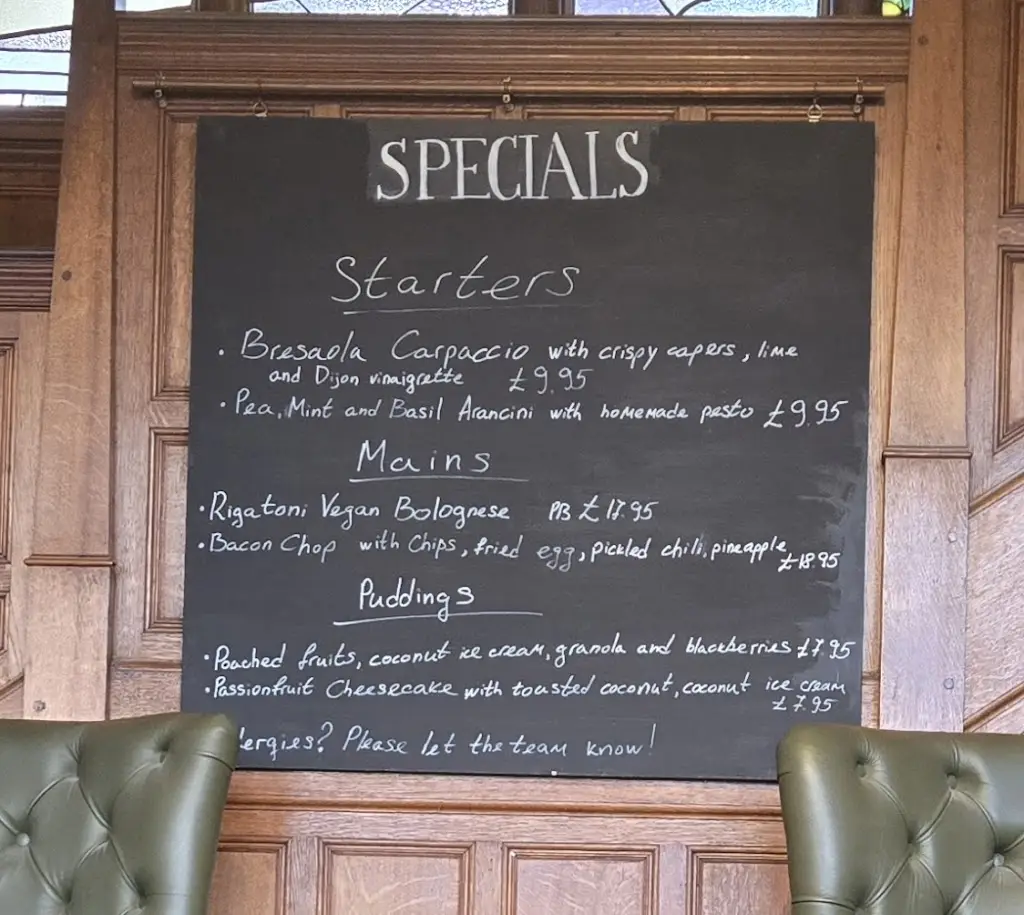 SPECIALS
Starters
· Bresaola Carpaccio with crispy capers, lime
and Dijon vinaigrette £9.95
· Pea, Mint and Basil Arancini with homemade pesto £9.95
Mains
· Rigatoni Vegan Bolognese PB £17.95
· Bacon Chop with Chips, fried egg, pickled chili, pineapple £18.95
Puddings
· Poached fruits, coconut ice cream, granola and blackberries £7.95
· Passionfruit Cheesecake with toasted coconut, coconut ice cream
£7.95
lergies? Please let the team know!